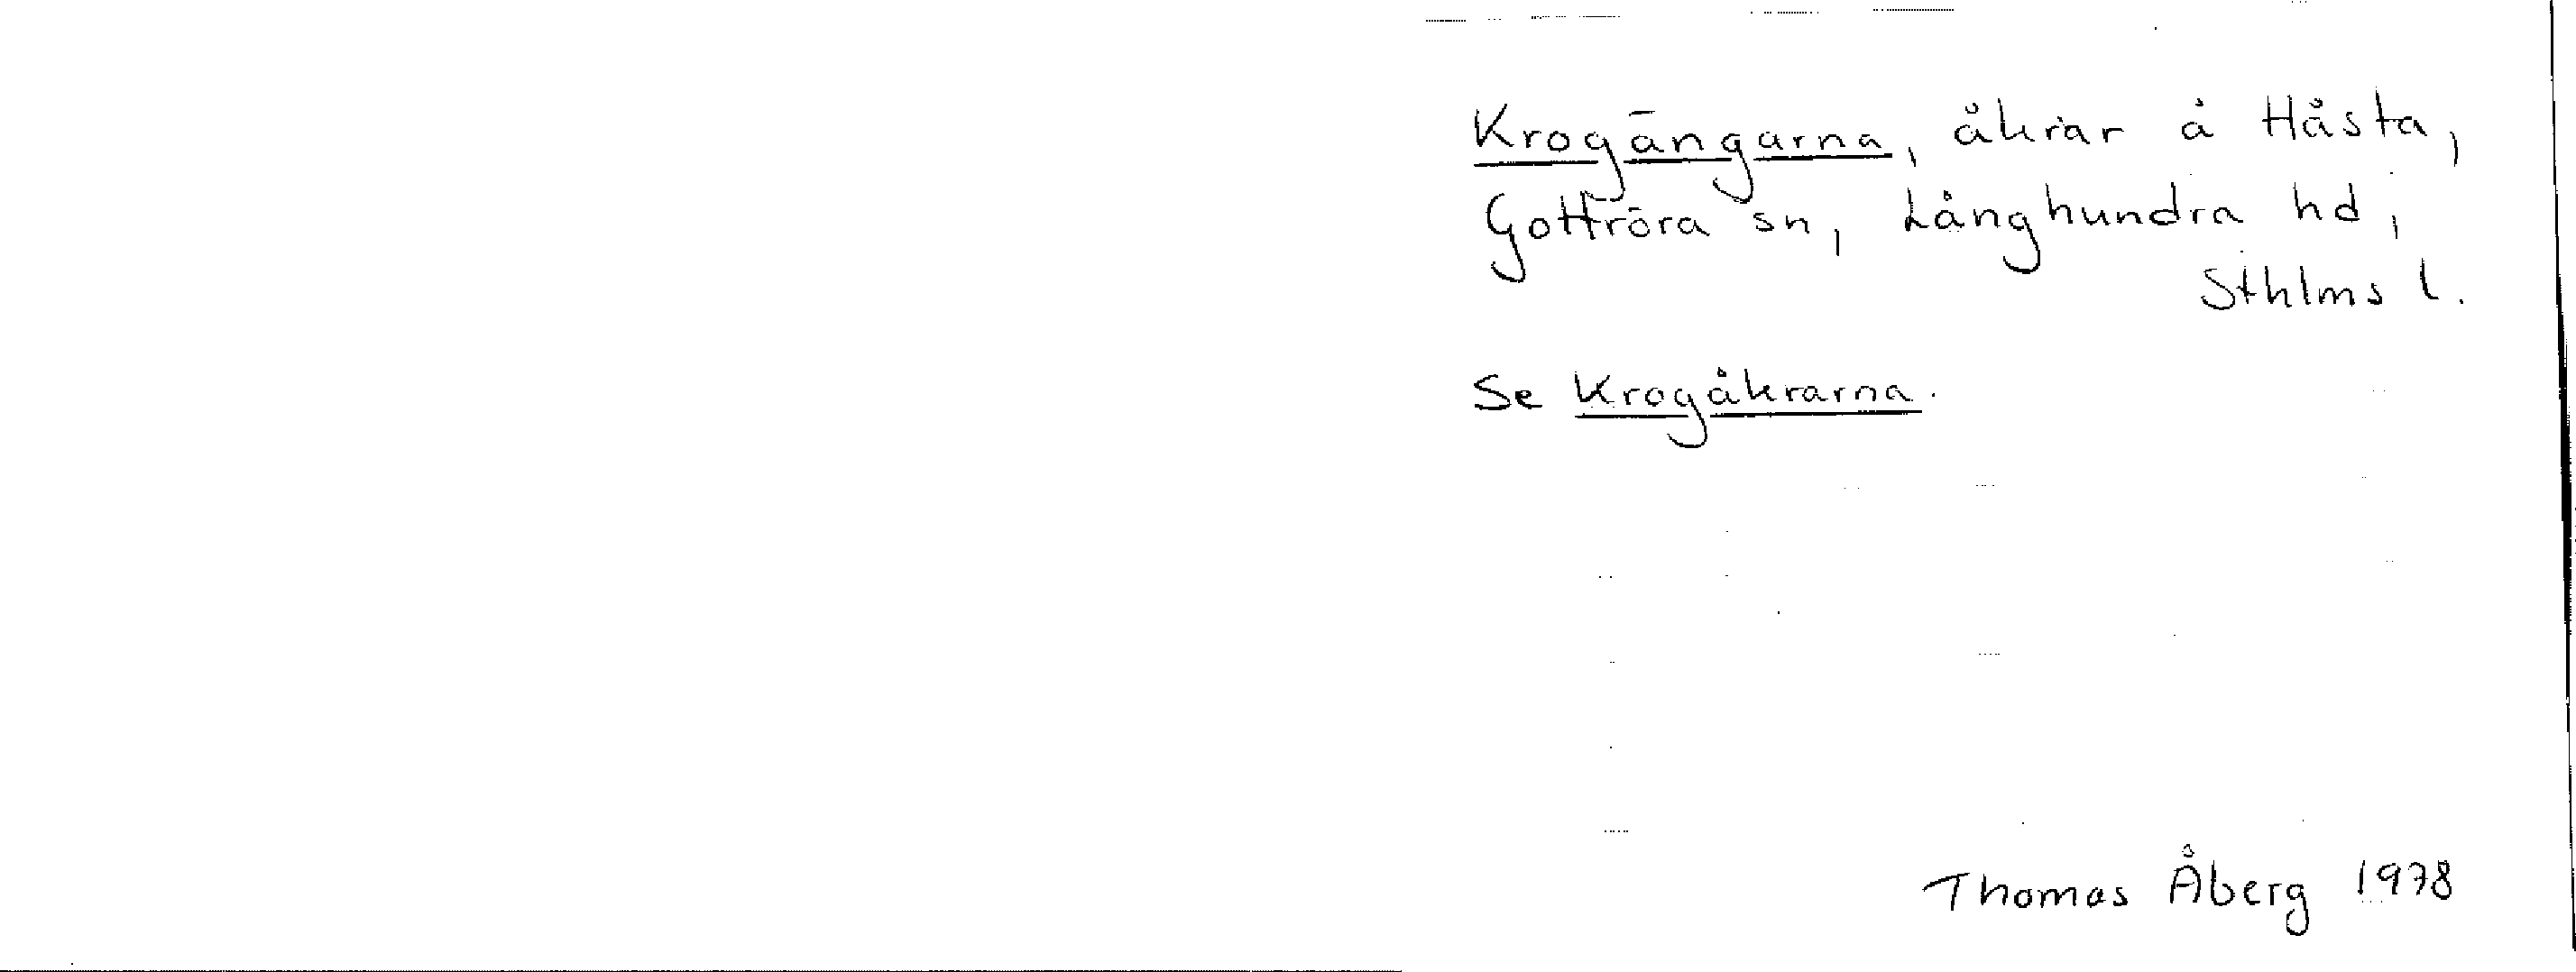 Krogängarna, åkrar å Håsta,
Gottröra sn, Långhundra hd,
Sthlms l.
Se Krogåkrarna.
Thomas Åberg 1978